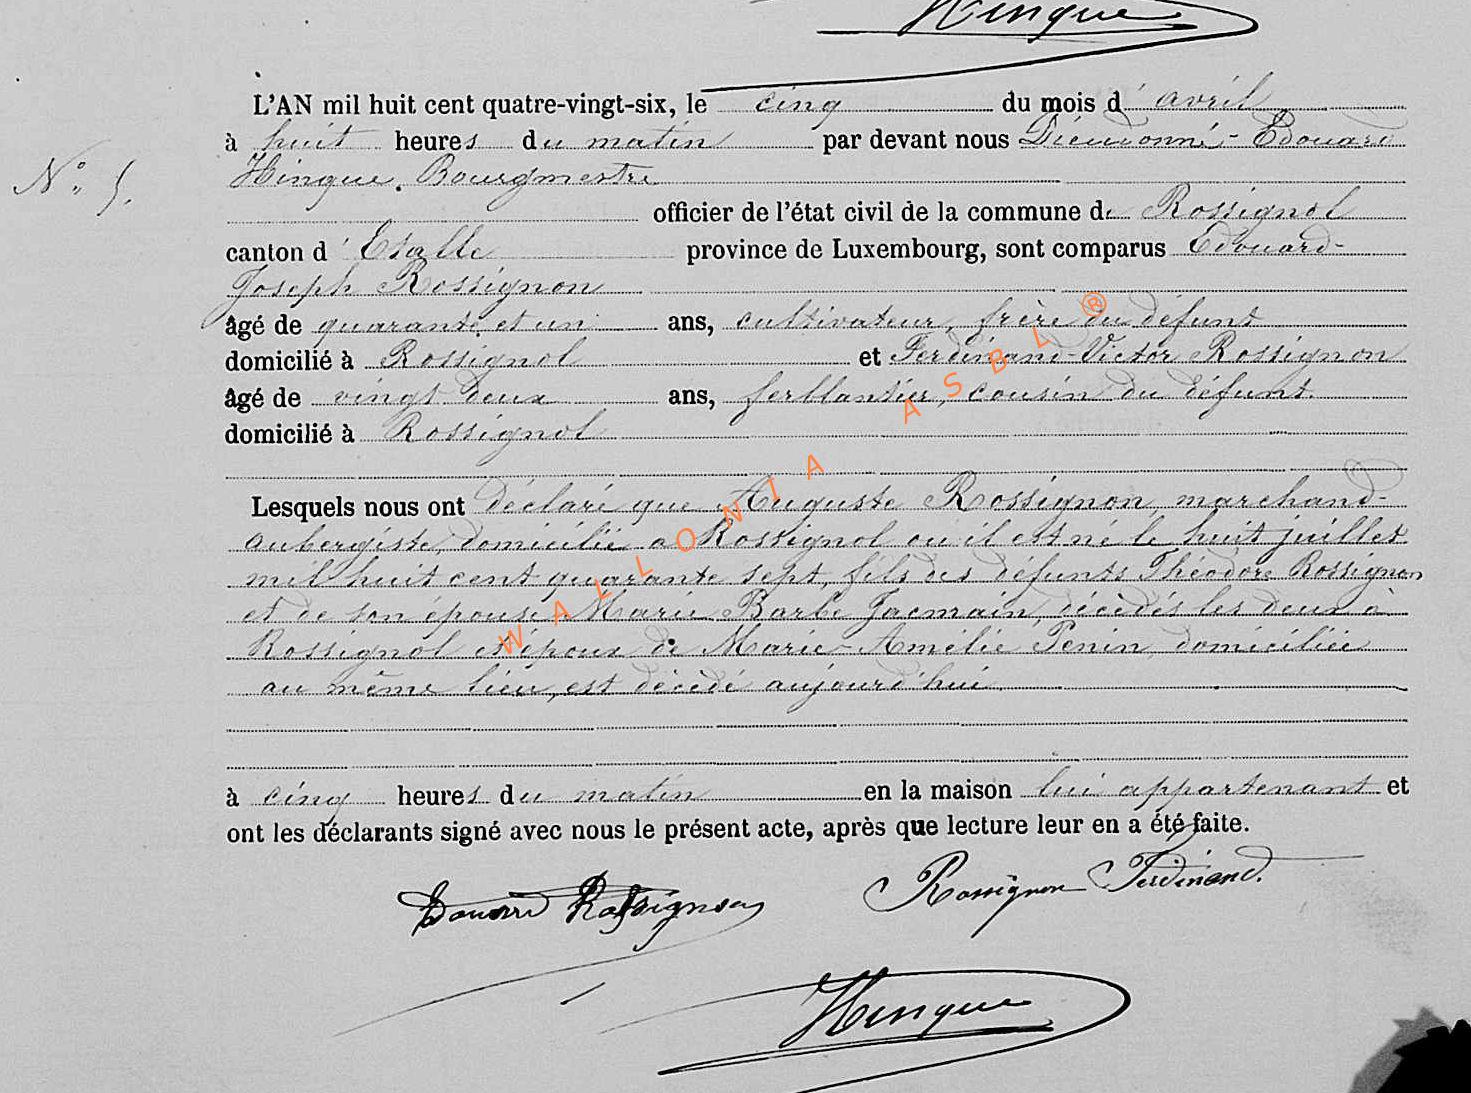 Hinque
L'AN mil huit cent quatre-vingt-six, le cinq du mois d'avril
à huit heures du matin par devant nous Dieudonné-Edouard
Hinque, Bourgmestre
N° 5.
officier de l'état civil de la commune de Rossignol
canton d'Etalle province de Luxembourg, sont comparus Edouard-
Joseph Rossignon
âgé de quarante et un ans, cultivateur, frère du défunt
domicilié à Rossignol et Ferdinand-Victor Rossignon
âgé de vingt deux ans, ferblantier, cousin du défunt.
domicilié à Rossignol
Lesquels nous ont déclaré que Auguste Rossignon, marchand-
aubergiste, domicilié à Rossignol où il est né le huit juillet
mil huit cent quarante sept, fils des défunts Théodore Rossignon
et de son épouse Marie Barbe Jacmain, décédés les deux à
Rossignol et époux de Marie-Amélie Penin, domiciliée
au même lieu, est décédé aujourd'hui
à cinq heures du matin en la maison lui appartenant et
ont les déclarants signé avec nous le présent acte, après que lecture leur en a été faite.
Edouard Rossignon Rossignon Ferdinand.
Hinque
WALLONIA ASBL ®